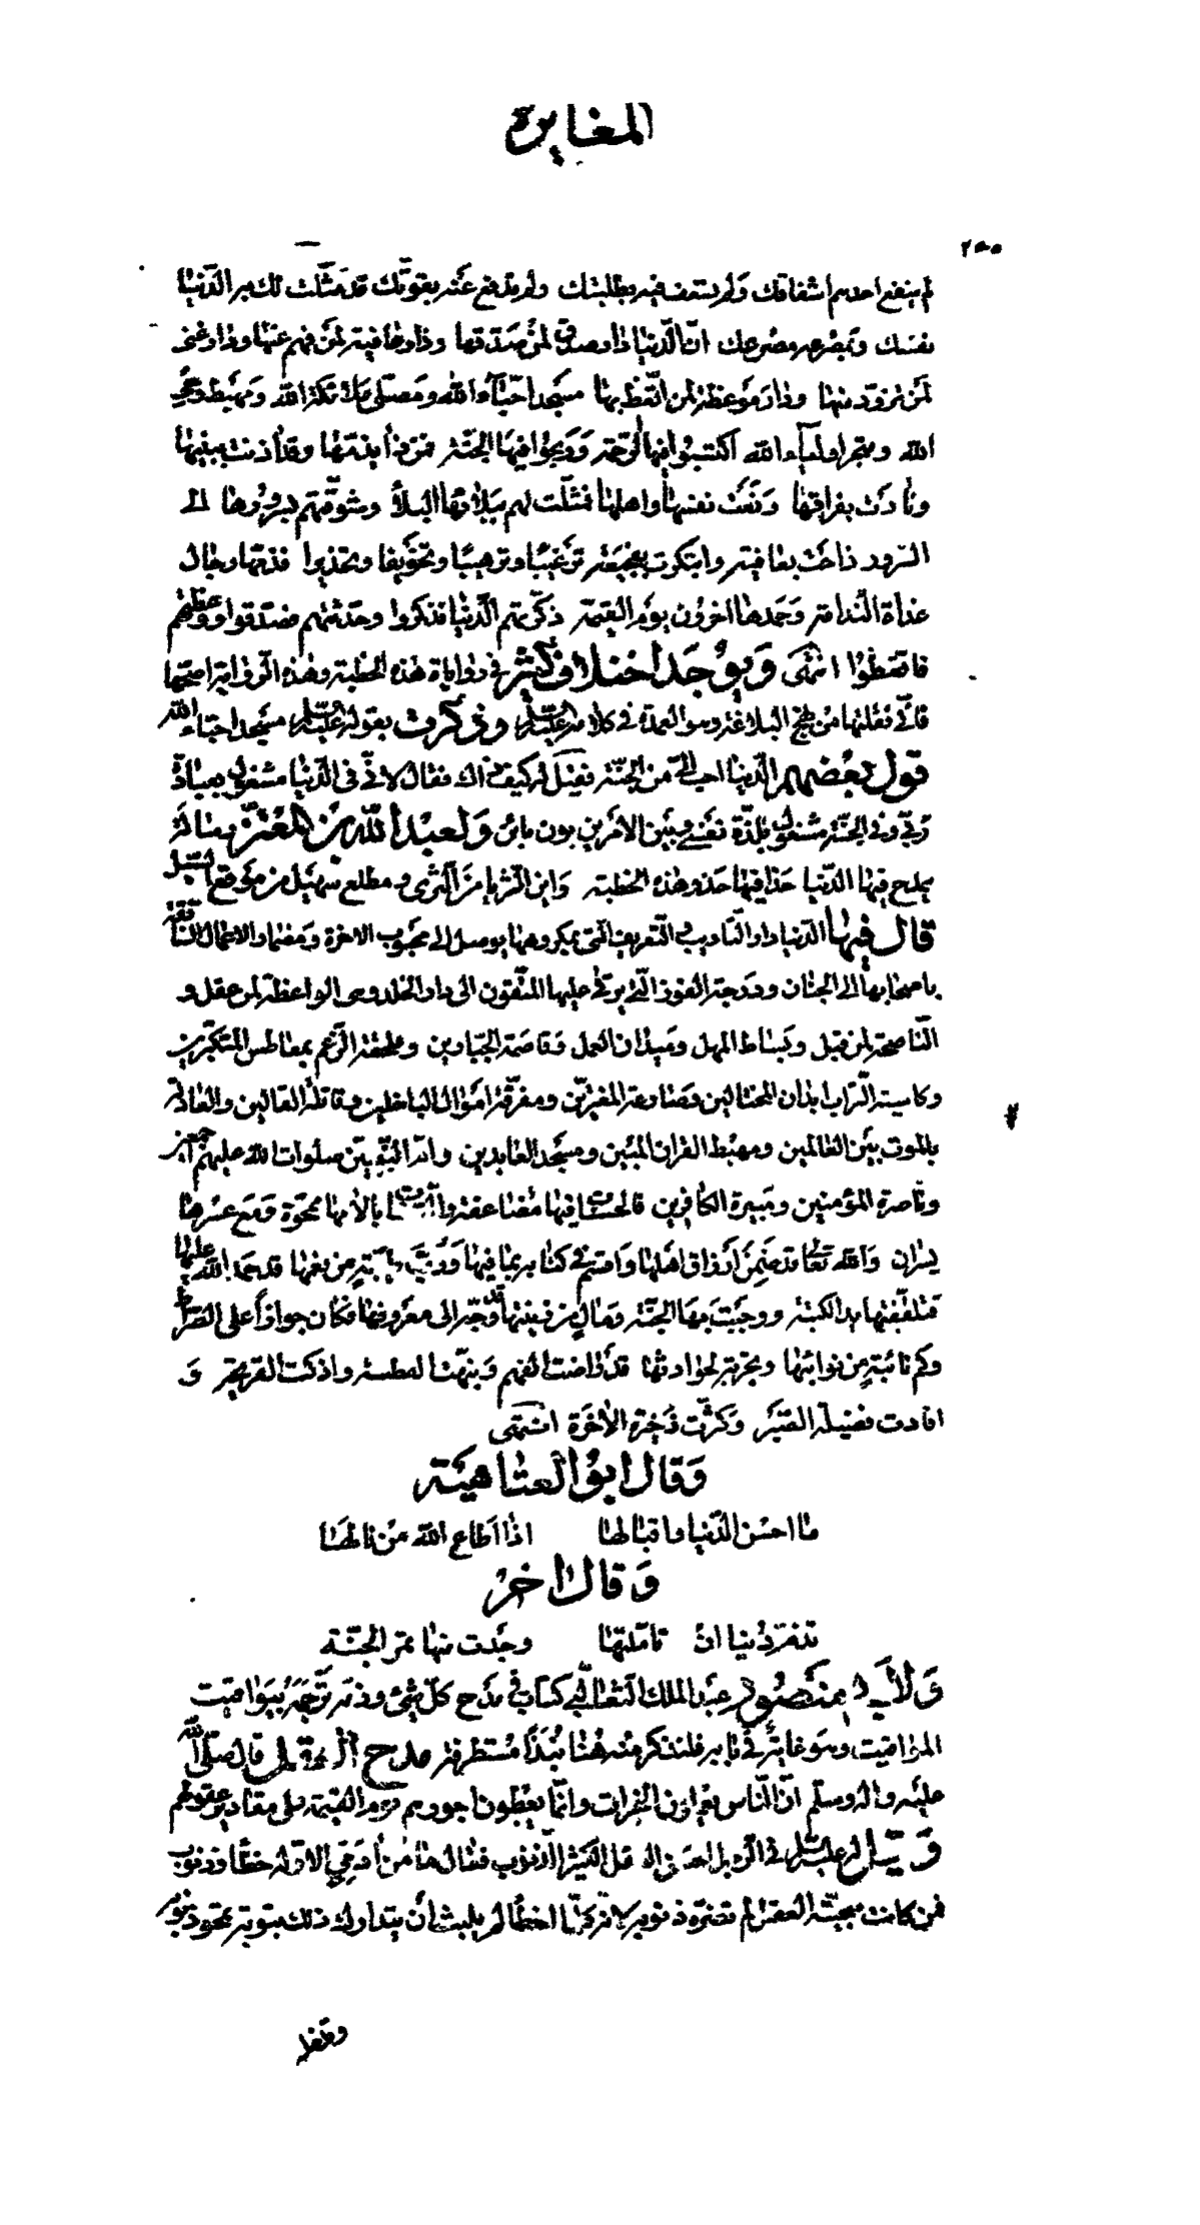 المغايرة
٢٥٥
لم ينفع احدهم اشفاقك ولم تستعف فيه بطلبتك ولم تدفع عنه بقوتك قد مثلت لك به الدنيا
نفسك وبمصرعه مصرعك ان الدنيا دار صدق لمن صدقها ودار عافية لمن فهم عنها ودار غنى
لمن تزود منها ودار موعظة لمن اتعظ بها مسجد احباء الله ومصلى ملائكة الله ومهبط وحي
الله ومتجر اولياء الله اكتسبوا فيها الرحمة وربحوا فيها الجنة فمن ذا يذمها وقد اذنت ببينها
ونادت بفراقها ونعت نفسها واهلها فمثلت لهم ببلائها البلاء وشوقتهم بسرورها الى
السرور راحت بعافية وابتكرت بفجيعة ترغيبا وترهيبا وتخويفا وتحذيرا فذمها رجال
غداة الندامة وحمدها اخرون يوم القيمة ذكرتهم الدنيا فتذكروا وحدثتهم فصدقوا ووعظتهم
فاتعظوا انتهى ويوجد اختلاف كثير في روايات هذه الخطبة وهذه الرواية اصحها
فاني نقلتها من نهج البلاغة وهو العمدة في كلامه عليه السلم وذكرت بقوله عليه السلم مسجد احباء الله
قول بعضهم الدنيا احب الي من الجنة فقيل له كيف ذاك فقال لاني في الدنيا مشغول بعبادة
ربي وفي الجنة مشغول بلذة نفسي وبين الامرين بون بائن ولعبد الله بن المعتز رسالة
يمدح فيها الدنيا حذا فيها حذو هذه الخطبة واين الثريا من الثرى ومطلع سهيل من موقع السيل
قال فيها الدنيا دار التاديب والتعريف التي بمكروهها يوصل الى محبوب الاخرة ومضمار الاعمال السابقة
باصحابها الى الجنان ودرجة الفوز التي يرتقي عليها المتقون الى دار الخلد وهي الواعظة لمن عقل و
الناصحة لمن قبل وبساط المهل وميدان العمل وقاصمة الجبارين وملحقة الرغم بمعاطس المتكبرين
وكاسية التراب ابدان المختالين وصارعة المغترين ومفرقة اموال الباخلين وقاتلة القاتلين والعادلة
بالموت بين العالمين ومهبط القران المبين ومسجد العابدين وام النبيين صلوات الله عليهم اجمعين
وناصرة المؤمنين ومبيرة الكافرين فالحسنات فيها مضاعفة والسيات بالامها ممحوة ومع عسرها
يسران والله تعالى قد ضمن ارزاق اهلها واقسم في كتابه بما فيها ورب طيبة من نعمها قد حمد الله عليها
فتلقفتها يد الكتبة ووجبت بها الجنة ومال من زينتها قد وجه الى معروفها فكان جوازا على الصراط
وكم نائبة من نوائبها وتجربة لحوادثها قد راضت الفهم ونبهت الفطسة واذكت القريحة و
افادت فضيلة الصبر وكثرت ذخيرة الاخرة انتهى
وقال ابو العتاهية
ما احسن الدنيا واقبالها اذا اطاع الله من نالها
وقال اخر
تذم دنيا ان تاملتها وجدت منها ثمر الجنة
ولابي منصور عبد الملك الثعالبي كتاب في مدح كل شئ وذمه ترجمه بيواقيت
المواقيت وهو غاية في بابه فلنذكر منه هنا نبذا مستظرفة مدح العقل قال صلى الله
عليه واله وسلم ان الناس يعملون الخيرات وانما يعطون اجورهم يوم القيمة على مقادير عقولهم
وقيل له عليه السلم في الرجل الحسن العقل الكثير الذنوب فقال ما من ادمي الا وله خطأ وذنوب
فمن كانت سجيته العقل لم تضره ذنوبه لانه كلما اخطأ لم يلبث ان يتدارك ذلك بتوبة تمحو ذنوبه